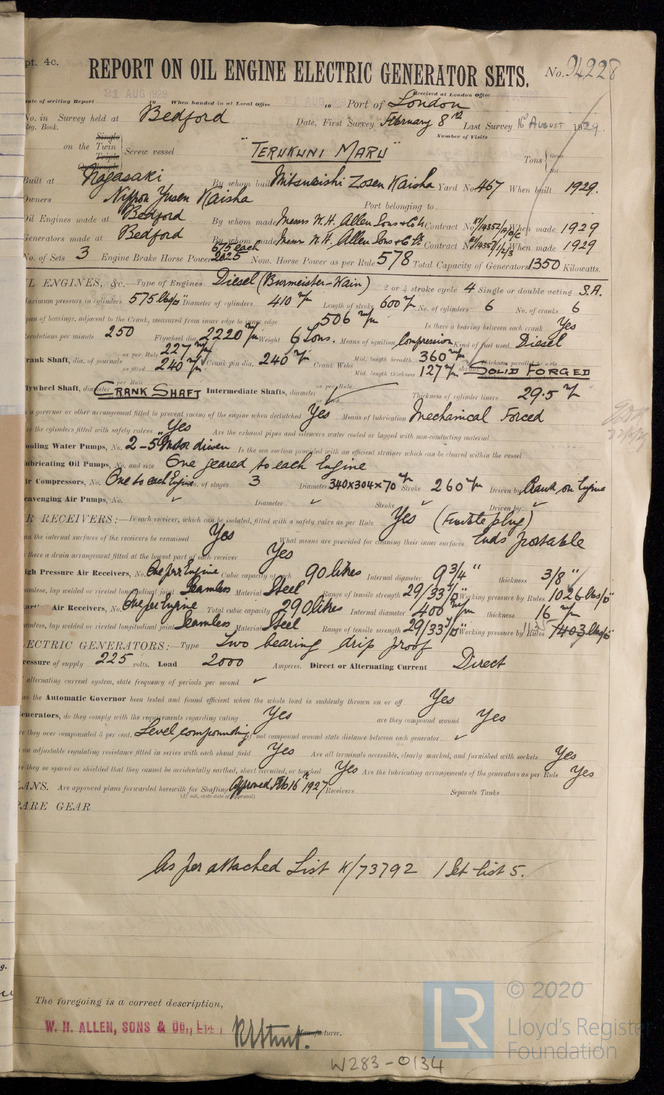 pt. 4c.
REPORT ON OIL ENGINE ELECTRIC GENERATOR SETS.
No. 94228
31 AUG 1929
Date of writing Report When handed in at Local Office Port of London Received at London Office
No. in Survey held at Bedford Date, First Survey February 8th Last Survey 16 August 1929
Reg. Book. Number of Visits
on the Single Twin Triple Screw vessel "TERUKUNI MARU" Tons
Built at Nagasaki By whom built Mitsubishi Zosen Kaisha Yard No 467 When built 1929.
Owners Nippon Yusen Kaisha Port belonging to
Oil Engines made at Bedford By whom made Messrs W.H. Allen Sons & Co Ltd Contract No. When made 1929
Generators made at Bedford By whom made Messrs W.H. Allen Sons & Co Ltd. Contract No. When made 1929
No. of Sets 3 Engine Brake Horse Power 675 each 2025 Nom. Horse Power as per Rule 578 Total Capacity of Generators 1350 Kilowatts.
IL ENGINES, &c.—Type of Engines Diesel (Burmeister-Wain) 2 or 4 stroke cycle 4 Single or double acting S.A.
Maximum pressure in cylinders 575 lbs/□" Diameter of cylinders 410 m/m Length of stroke 600 m/m No. of cylinders 6 No. of cranks 6
Span of bearings, adjacent to the Crank, measured from inner edge to inner edge 506 m/m Is there a bearing between each crank Yes
Revolutions per minute 250 Flywheel dia. 2220 m/m Weight 6 Tons. Means of ignition Compression Kind of fuel used Diesel
Crank Shaft, dia. of journals as per Rule 227 m/m as fitted 240 m/m Crank pin dia. 240 m/m Crank Webs Mid. length breadth 360 m/m Mid. length thickness 127 m/m SOLID FORGED
Flywheel Shaft, diameter as per Rule CRANK SHAFT Intermediate Shafts, diameter as per Rule Thickness of cylinder liners 29.5 m/m
Is a governor or other arrangement fitted to prevent racing of the engine when declutched Yes Means of lubrication Mechanical Forced
Are the cylinders fitted with safety valves Yes Are the exhaust pipes and silencers water cooled or lagged with non-conducting material
Cooling Water Pumps, No. 2-5" Motor driven Is the sea suction provided with an efficient strainer which can be cleared within the vessel
Lubricating Oil Pumps, No. and size One geared to each Engine
Air Compressors, No. One to each Engine No. of stages 3 Diameters 340x304x70 m/m Stroke 260 m/m Driven by Crank on Engine
Scavenging Air Pumps, No. Diameter Stroke Driven by
R RECEIVERS:—Is each receiver, which can be isolated, fitted with a safety valve as per Rule Yes (Fusible plug)
Can the internal surfaces of the receivers be examined Yes What means are provided for cleaning their inner surfaces Ends portable
Is there a drain arrangement fitted at the lowest part of each receiver Yes
High Pressure Air Receivers, No. One per Engine Cubic capacity of each 90 litres Internal diameter 9 3/4" thickness 3/8"
Seamless, lap welded or riveted longitudinal joint Seamless Material Steel Range of tensile strength 29/33 T/□" Working pressure by Rules 1026 lbs/□"
Starting Air Receivers, No. One for Engine Total cubic capacity 290 litres Internal diameter 400 m/m thickness 16 m/m
Seamless, lap welded or riveted longitudinal joint Seamless Material Steel Range of tensile strength 29/33 T/□" Working pressure by Rules 1403 lbs/□"
ECTRIC GENERATORS:—Type Two bearing drip proof
Pressure of supply 225 volts. Load 2000 Amperes. Direct or Alternating Current Direct
If alternating current system, state frequency of periods per second
Has the Automatic Governor been tested and found efficient when the whole load is suddenly thrown on or off Yes
Generators, do they comply with the requirements regarding rating Yes are they compound wound Yes
Are they over compounded 5 per cent. Level compounding if not compound wound state distance between each generator
Is an adjustable regulating resistance fitted in series with each shunt field Yes Are all terminals accessible, clearly marked, and furnished with sockets Yes
Are they so spaced or shielded that they cannot be accidentally earthed, short circuited, or touched Yes Are the lubricating arrangements of the generators as per Rule Yes
LANS. Are approved plans forwarded herewith for Shafting Approved Feb 16th 1927 Receivers Separate Tanks
(If not, state date of approval)
PARE GEAR
As per attached List K/73792 1 Set list 5.
The foregoing is a correct description,
W. H. ALLEN, SONS & Co., LTD. Manufacturer.
W283-0134
© 2020
LR Lloyd's Register
Foundation